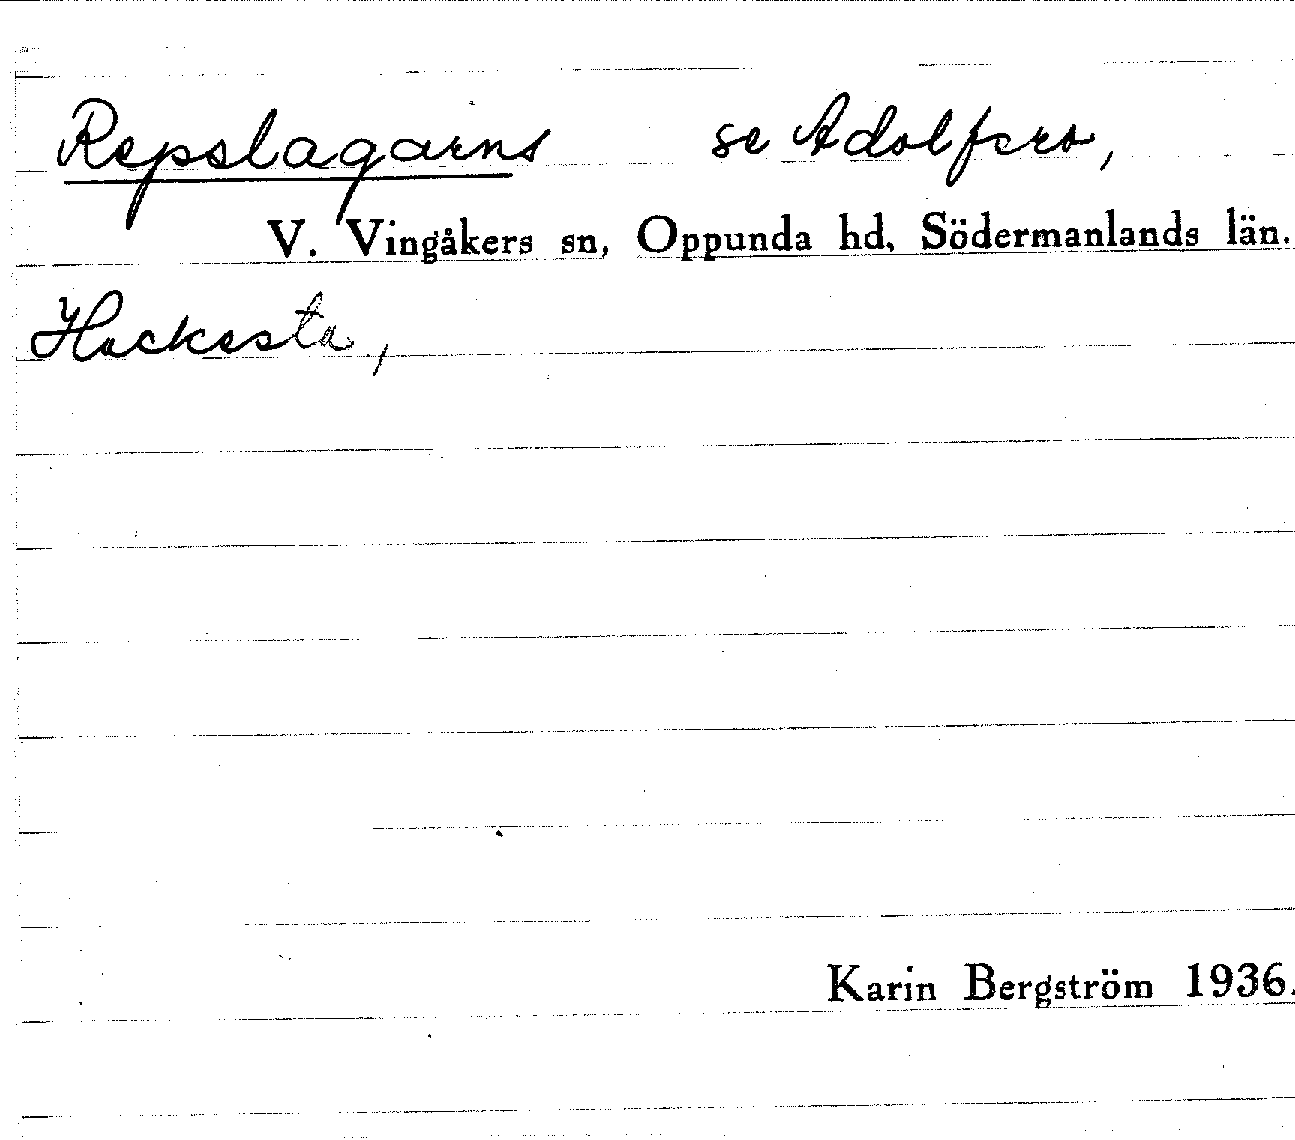 Repslagarns se Adolfers,
V. Vingåkers sn, Oppunda hd, Södermanlands län.
Hackesta,
Karin Bergström 1936.